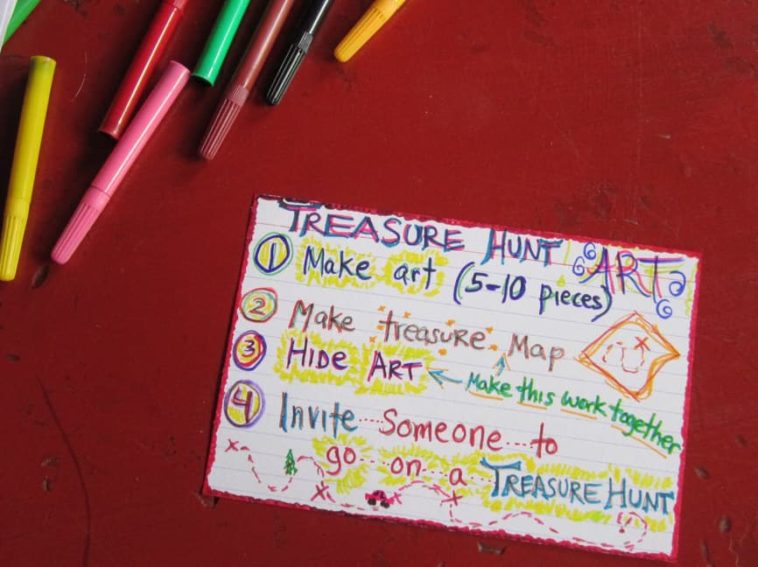 TREASURE HUNT ART
1 Make art (5-10 pieces)
2 Make treasure Map
3 HIDE ART
Make this work together
4 Invite Someone to
go on a TREASURE HUNT